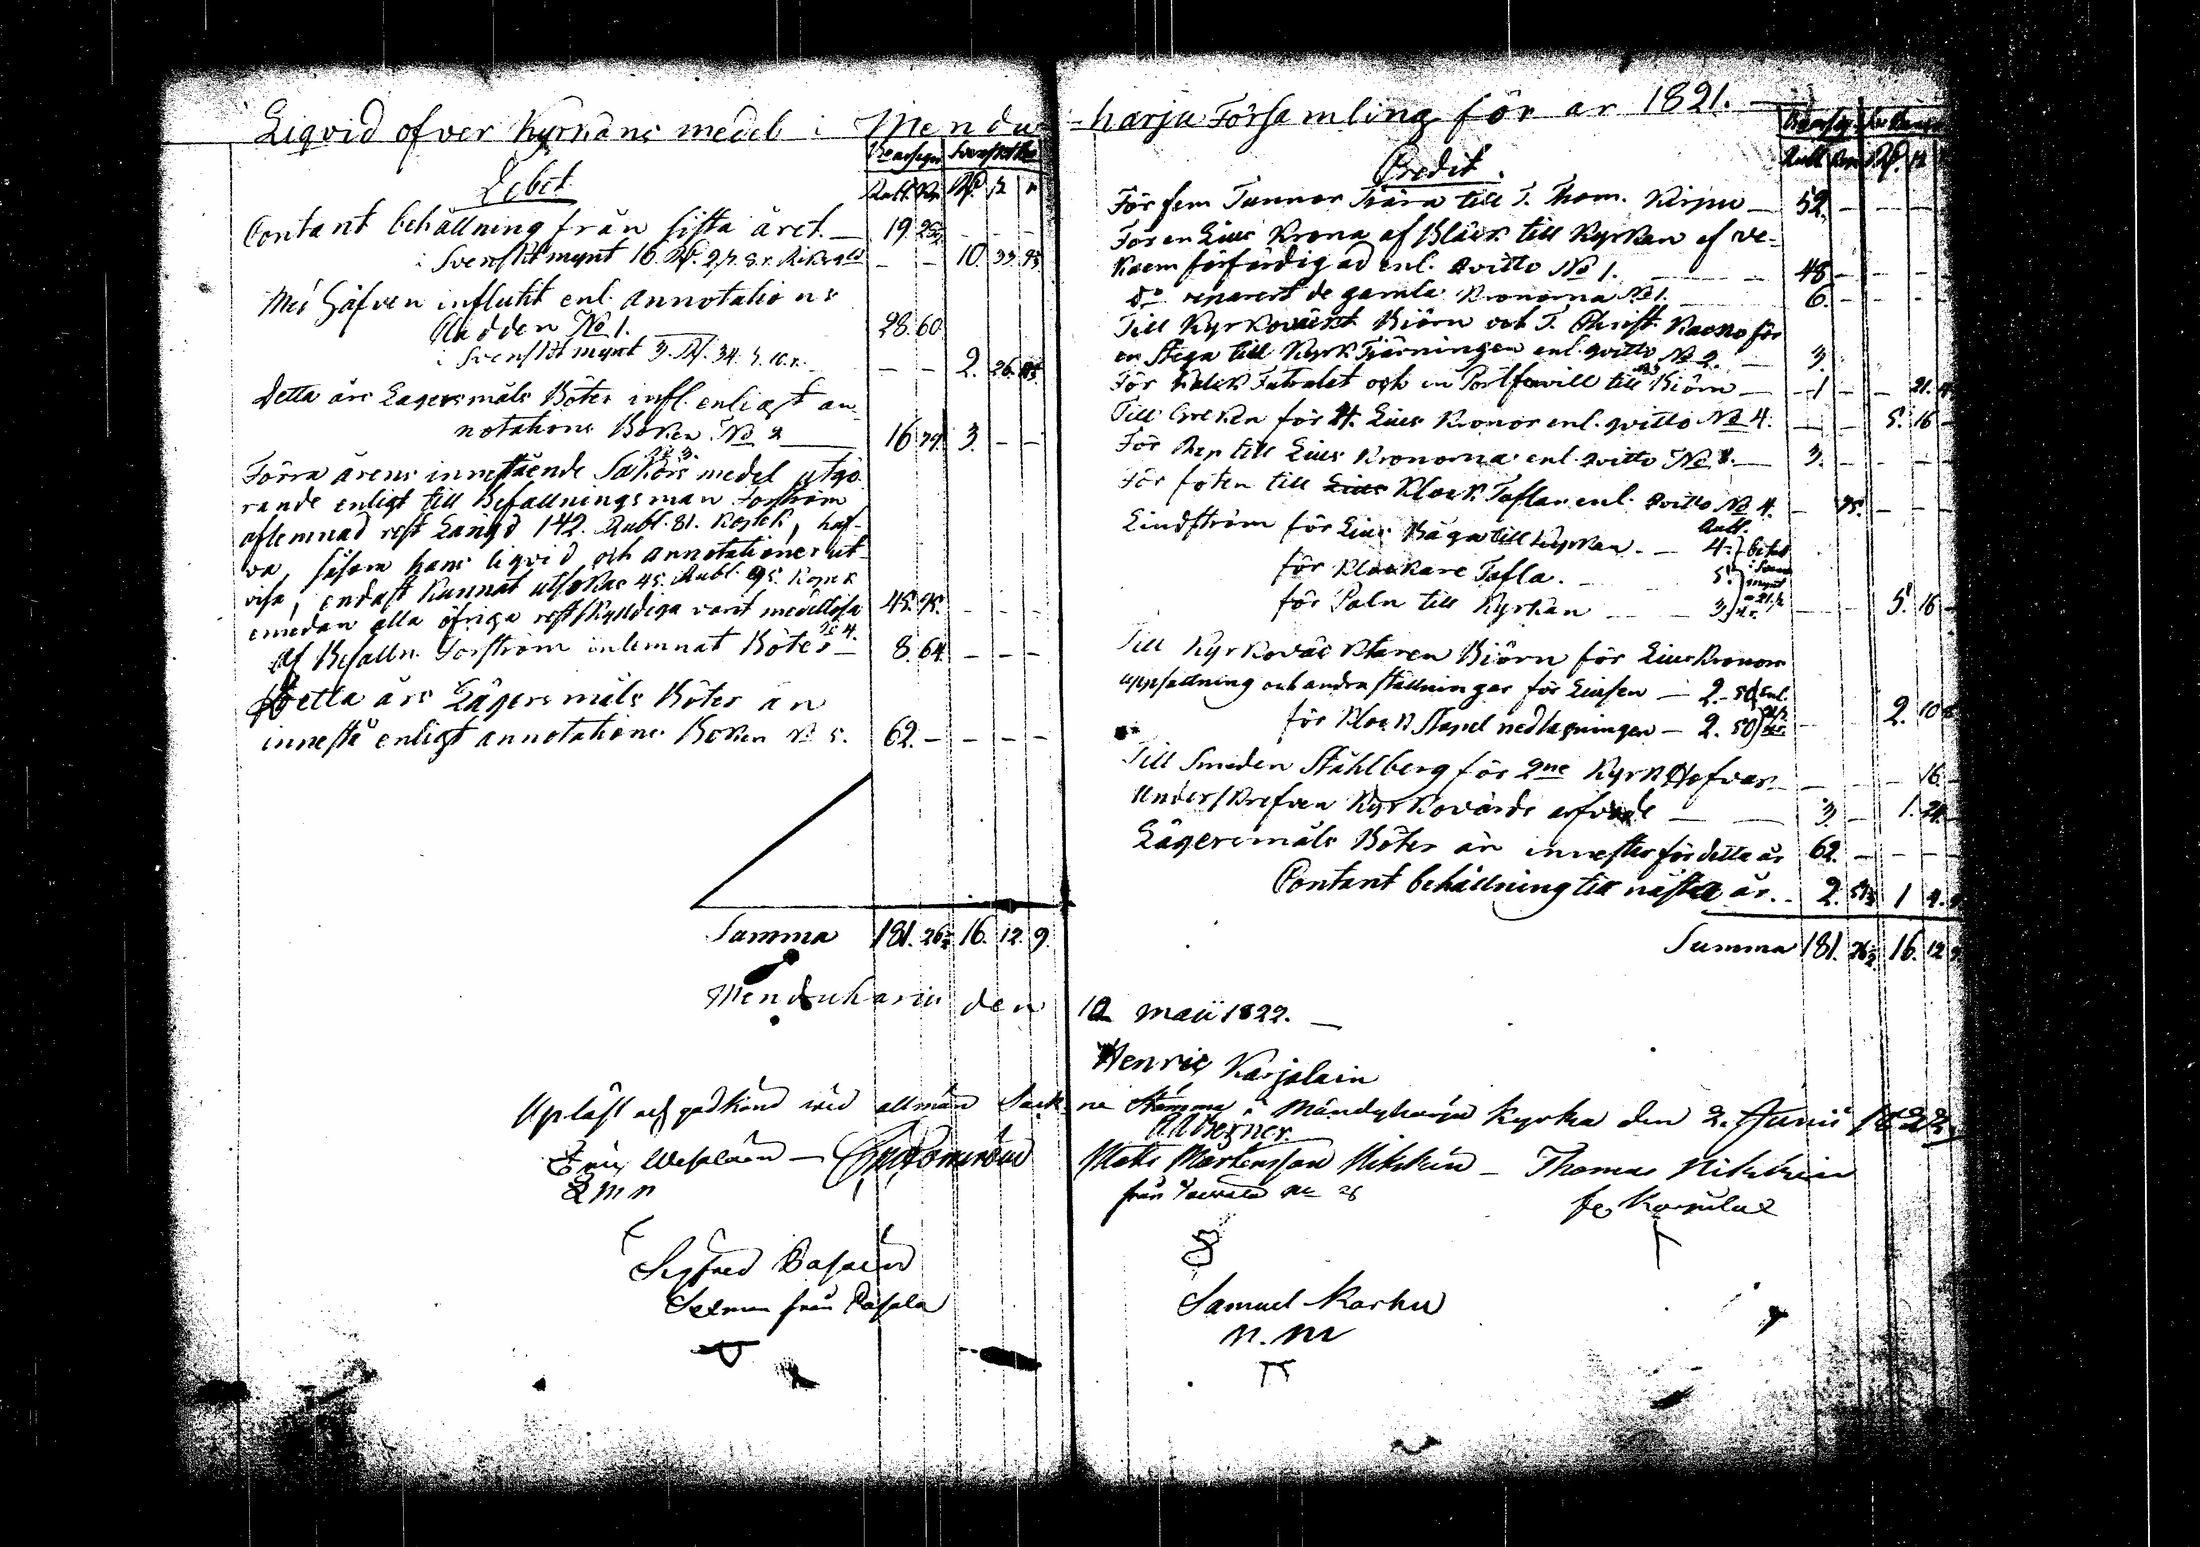 Liqvid öfver Kyrkans medel i Mendu-
Debet
Rubl. Kop.
Contant behållning från sista året — 19. 25½
i Svenskt mynt 16. Rd. 2. s. 8. r. Riksgld — — 10. 33
Med Håfven influtit enl. annotations
Cladden No 1. 28. 60.
i Svenskt mynt 3. Rd. 34. s. 10. r. — — 2. 26.
Detta års Lägersmåls Böter infl. enligt an-
notations Boken No 2 — 16. 3. — —
No 3.
Förra årens innestående Sakörs medel utgö-
rande enligt till Befallningsman Forström
aflemnad rest Längd 142. Rubl. 81. Kopek, haf-
va, såsom hans liqvid och annotationer ut-
visa, endast kunnat utsökas 45. Rubl. 95. Kopek
emedan alla öfriga restskyldiga varit medellösa 45. 95. — — —
No 4.
Af Befalln. Forström inlemnat Böter — 8. 64. — — —
Detta års Lägersmåls Böter än
innestå enligt annotations Boken No 5. 62. — — — —
Summa 181. 26½ 16. 12. 9.
Menduharju den
harju Församling för år 1821.
Credit.
För fem Tunnor Tjära till T. Thom. Kirpu — 52. — — — —
För en Ljus Krona af Bläck till Kyrkan af ve-
förfärdigad enl. qvitto No 1. — 48 — — —
do reparert de gamla Kronorna No 1. — 6. — — —
Till Kyrkovärdt Björn och T. Christ. för
en Stega till Kyrk Tjärningen enl. qvitto No 2. — 3.
För Kalk Futralet och en Portfeuill till Björn — 1 — — 21.
Till Greken för 4. Ljus Kronor enl. qvitto No 4. — — 5. 16 —
För Rep till Ljus Kronorna enl. qvitto — 3. — — —
För foten till Klock Taflan enl. qvitto No 4. — 75. — — —
Rubl.
Lindström för Ljus Båga till Kyrkan. — 4.
för Klockare Tafla. — 5.
för Paln till Kyrkan — 3. — — 5. 16 —
Till Kyrkoväcktaren Björn för Ljus Kronors
uppsättning och andra ställningar för Ljusen — 2. 50 enl.
för Klock Stapel nedtagningen — 2. 50 — 2. 10
Till Smeden Ståhlberg för 2ne Kyrk — — — 16. —
Underskrefven Kyrkovärds arfvode — 3. — 1. 24.
Lägersmåls Böter än innestår för detta år 62. — — — —
Contant behållning till nästa år. 2. 51½ 1 4. 9
Summa 181. 26½ 16. 12 9.
12 Maii 1822. —
Henric Karjalain
Upläst och godkänd wid allmän Sockne Stämma i Mändyharju Kyrka den 2. Junii 1822
Eric Wesalain —
Matts Mårtensson Nikkein — Thomas Nikkein
från
Sigfred Pasain
Sexman från Pasala
Samuel Karhu
n. m